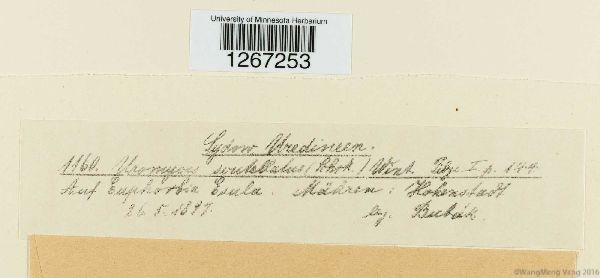 University of Minnesota Herbarium
1267253
Sydow Uredineen.
1160. Uromyces scutellatus (Schrk.) Wint. Pilze I. p. 144
Auf Euphorbia Esula. Mähren: Hohenstadt
26. 5. 1897. leg. Bubák.
©WangMeng Vang 2016